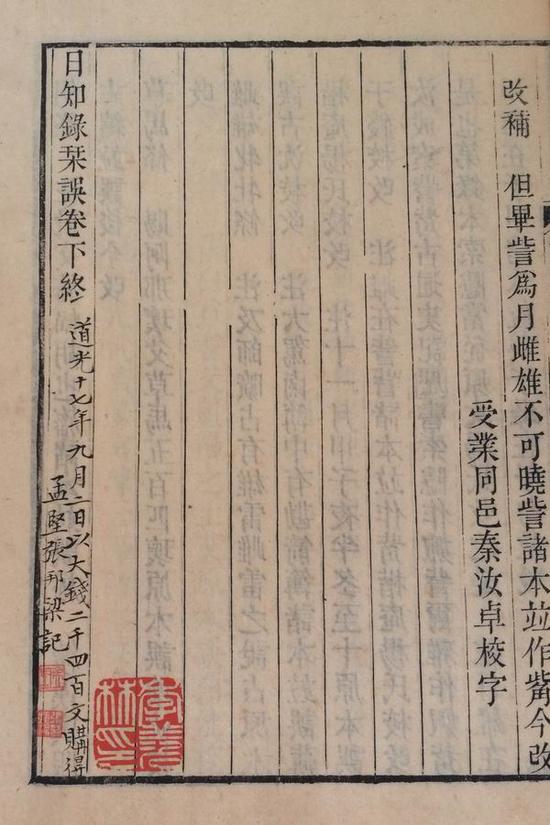 改補但畢訾爲月雌雄不可曉訾諸本並作觜今改
受業同邑秦汝卓挍字
日知錄栞誤卷下終
道光十七年九月二日以大錢二千四百文購得
孟堅張邦梁記